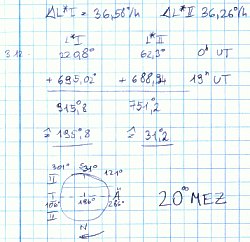 ΔL*I = 36,58°/h ΔL*II 36,26°/h
L*I L*II
220,8° 62,3° 0ʰ UT
+ 695,02° + 688,94 19ʰ UT
915,8 751,2
≙ 195,8 ≙ 31,2
301° S 31° 121°
II
I 106° 196° Ä 286°
II
N
20⁰⁰ MEZ